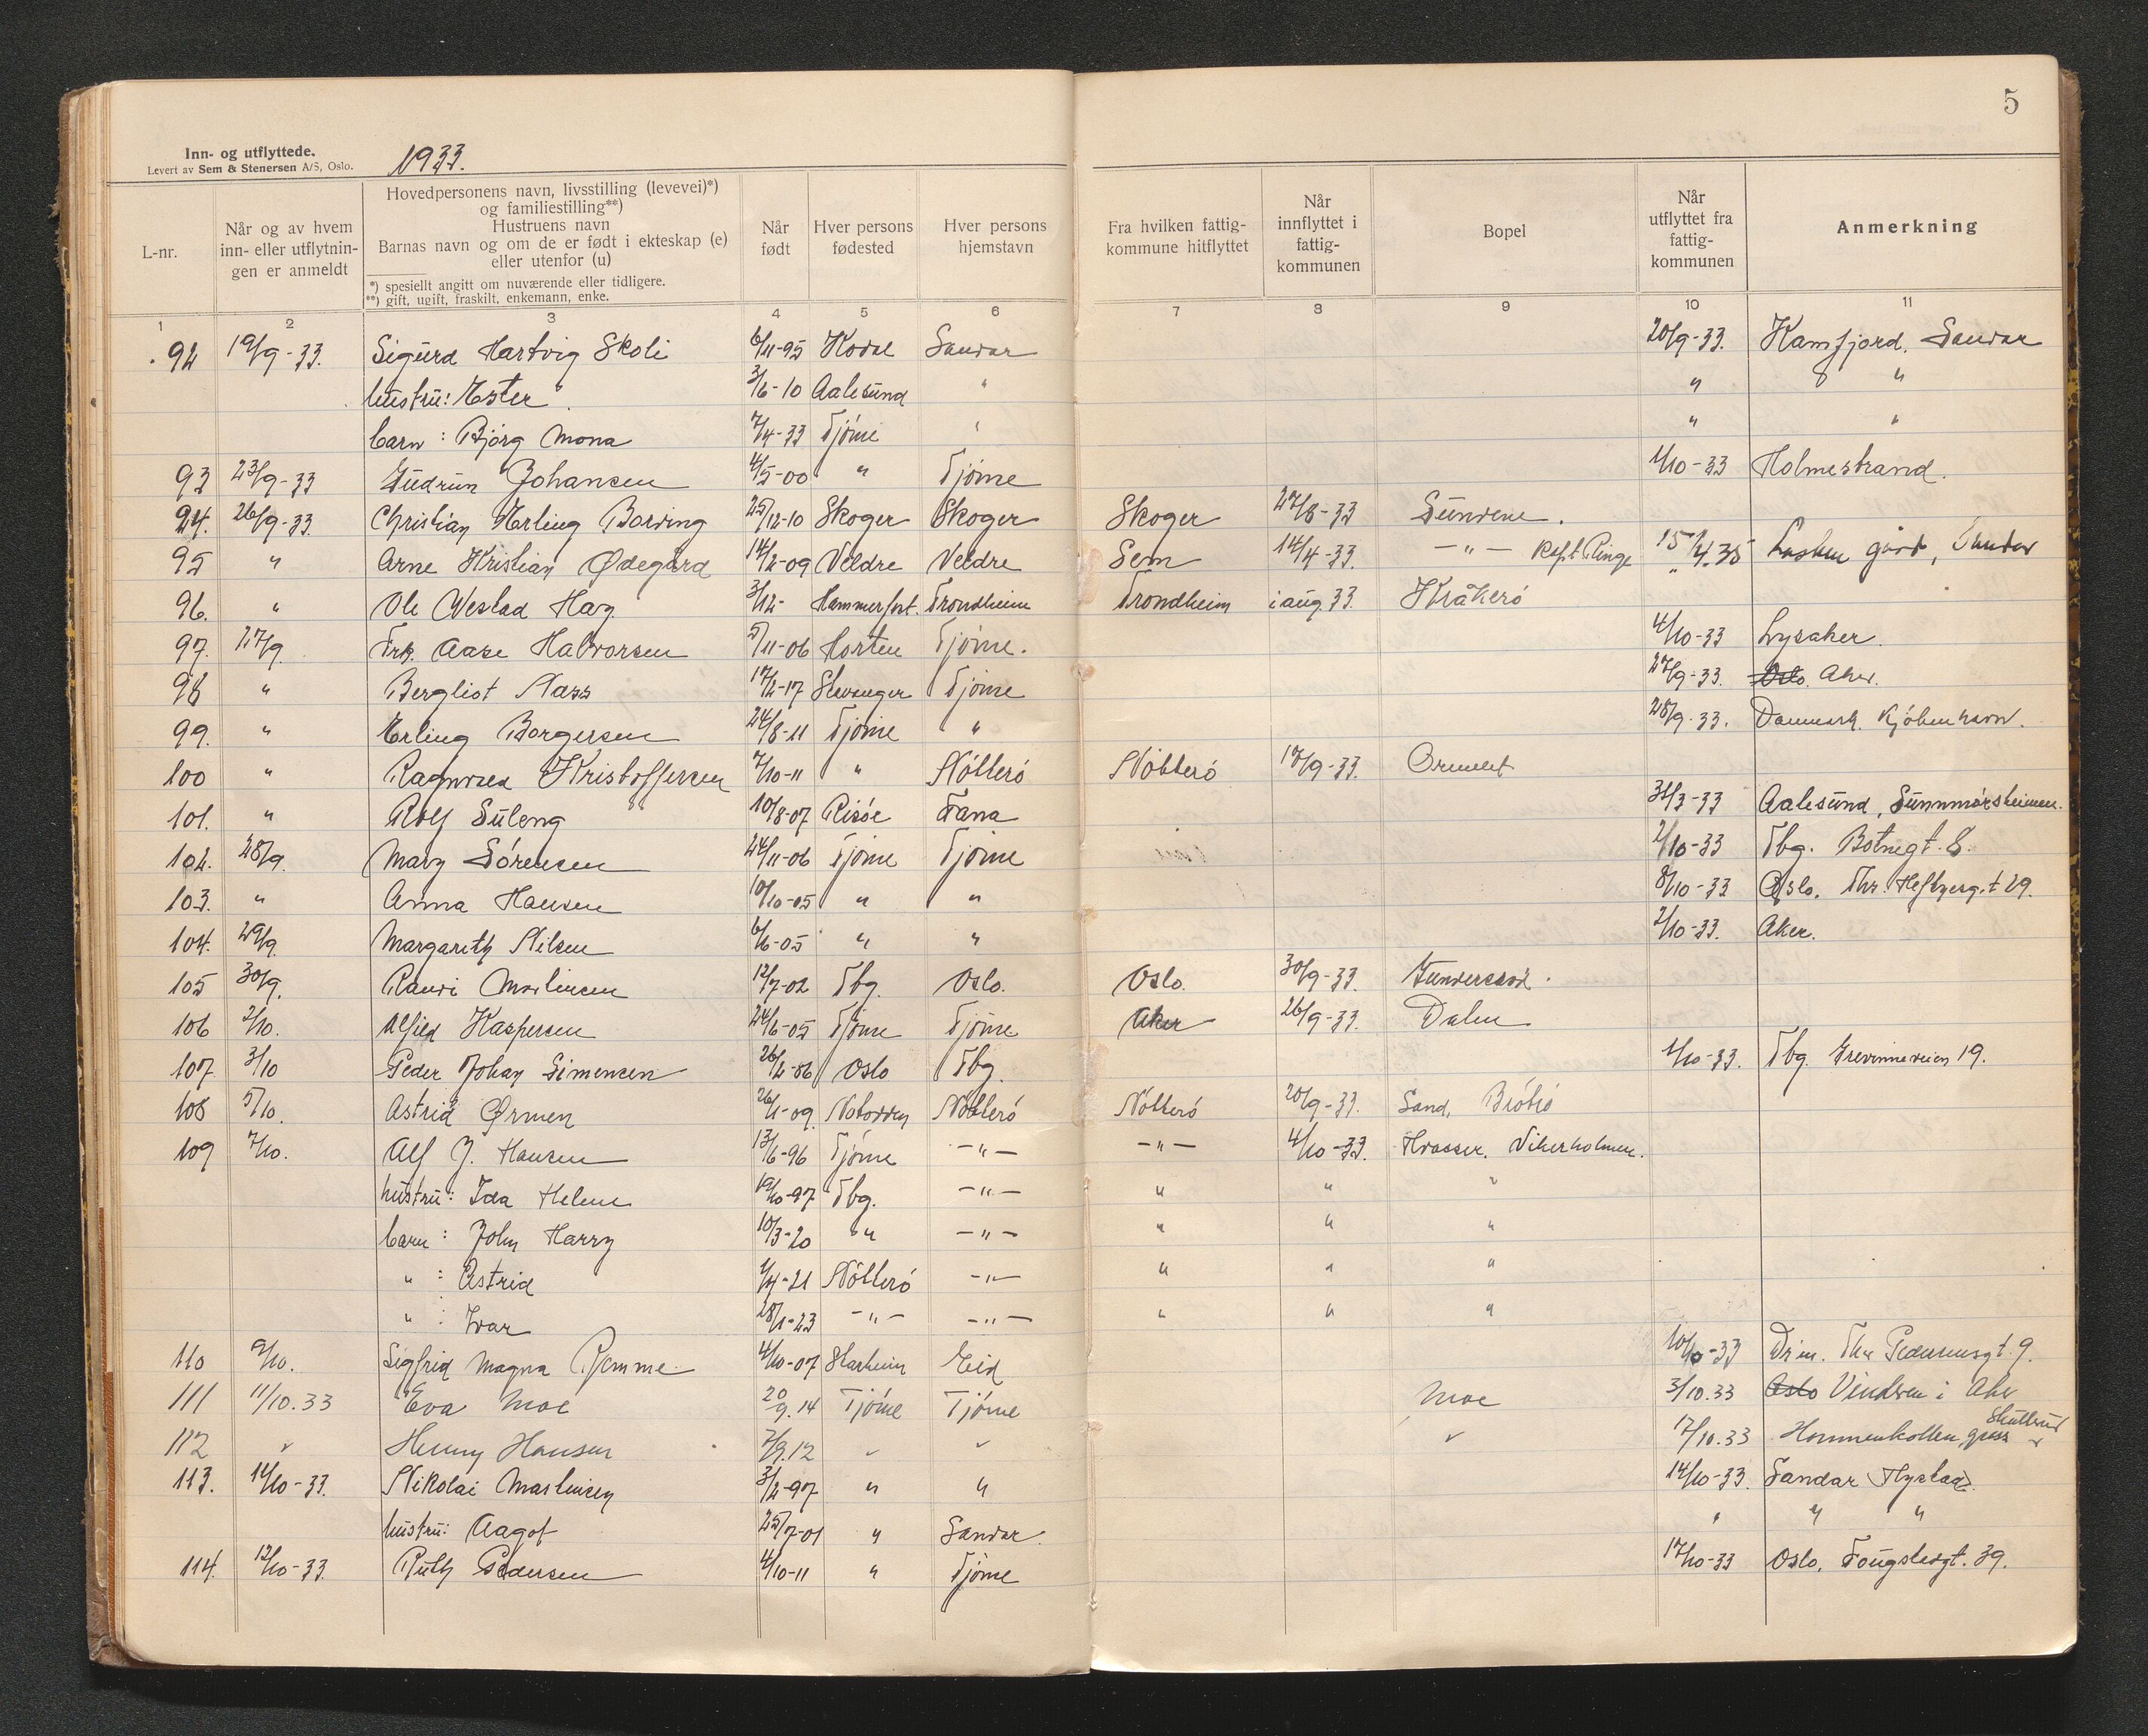 5
Inn- og utflyttede.
Levert av Sem & Stenersen A/S, Oslo.
1933.
L-nr.
Når og av hvem inn- eller utflytnin-gen er anmeldt
Hovedpersonens navn, livsstilling (levevei)*)
og familiestilling**)
Hustruens navn
Barnas navn og om de er født i ekteskap (e)
eller utenfor (u)
*) spesiellt angitt om nuværende eller tidligere.
**) gift, ugift, fraskilt, enkemann, enke.
Når født
Hver persons fødested
Hver persons hjemstavn
Fra hvilken fattig-kommune hitflyttet
Når innflyttet i fattig-kommunen
Bopel
Når utflyttet fra fattig-kommunen
Anmerkning
1 2 3 4 5 6 7 8 9 10 11
92 19/9-33. Sigurd Hartvig Skoli 6/11-95 Kodal Sandar 20/9-33. Kamfjord. Sandar
hustru: Ester 3/6-10 Aalesund " " " "
barn: Bjørg Mona 7/4-33 Tjöme " " "
93 23/9-33 Gudrun Johansen 4/5-00 " Tjöme 1/10-33 Holmestrand.
94. 26/9-33. Christian Erling Bording 25/12-10 Skoger Skoger Skoger 27/8-33 Sundene.
95 " Arne Kristian Ødegård 14/2-09 Veldre Veldre Sem 14/4-33. -"- Ringe 15/4.35 gård, Sandar
96. " Ole Westad Hag 3/12- Hammerfest. Trondheim Trondheim i aug. 33. Kråkerö
97. 27/9. Frk. Aase Halvorsen 5/11-06 Horten Tjöme. 4/10-33 Lysaker.
98 " Bergliot Næss 17/2-17 Stavanger Tjöme 27/9-33. Oslo. Aker.
99. " Erling Borgersen 24/8-11 Tjöme " 28/9-33. Danmark. Kjöbenhavn.
100 " Kristoffersen 7/10-11 " Nötterö Nötterö 17/9-33. Ormelet
101. " Rolf Suleng 10/8-07 Risör Fana 31/3-33 Aalesund, Sunnmörsheimen.
102. 28/9. Mary Sörensen 24/11-06 Tjöme Tjöme 2/10-33 Tbg. Botnegt. 8.
103. " Anna Hansen 10/10-05 " " 8/10-33 Oslo. Thr. Heftyergt 29.
104. 29/9. Margareth Nilsen 6/6-05 " " 2/10-33. Aker.
105 30/9. Randi Martinsen 12/7-02 Tbg. Oslo. Oslo. 30/9-33. Gunderssöd.
106 2/10. Alfild Kaspersen 24/6-05 Tjöme Tjöme Aker 26/9-33. Dalen
107 3/10 Peder Johan Simensen 26/2-86 Oslo Tbg. 1/10-33. Tbg. Grevinneveien 19.
108 5/10. Astrid Ørmen 26/1-09. Notodden Nötterö Nötterö 20/9-33. Sand,
109 7/10. Alf J. Hansen 13/6-96 Tjöme -"- -"- 4/10-33. Hvasser. Vikerholmen.
hustru: Ida Helene 19/10-97 Tbg. -"- " " "
barn: John Harry 10/3-20 " -"- " " "
" : Astrid 1/4-21 Nötterö -"- " " "
" : Ivar 28/1-23 -"- -"- " " "
110 9/10. Sigfrid Magna Remme 4/10-07 Starheim Eid 10/10-33 Drm. Thr Pedersensgt. 9.
111 11/10.33 Eva Moe 20/9.14 Tjöme Tjöme Moe 3/10.33 Oslo Vinderen i Aker
112 " Henny Hansen 7/9.12 " " " 17/10.33 Hommenkollen
113. 14/10-33. Nikolai Martinsen 3/2-97 " " 14/10-33. Sandar Hystad.
hustru: Aagot 25/7-01 " Sandar. " " "
114. 12/10-33. Ruth Pedersen 4/10-11 " Tjöme 17/10-33 Oslo, Fougstadgt. 39.